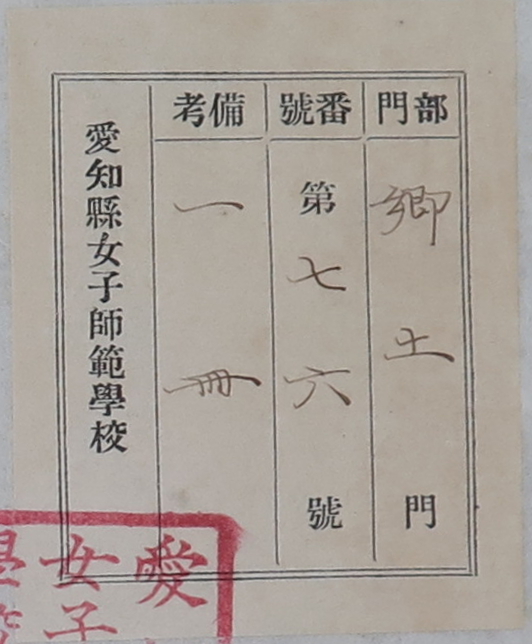 部門
鄕土門
番號
第七六號
備考
一冊
愛知縣女子師範學校
愛
女子